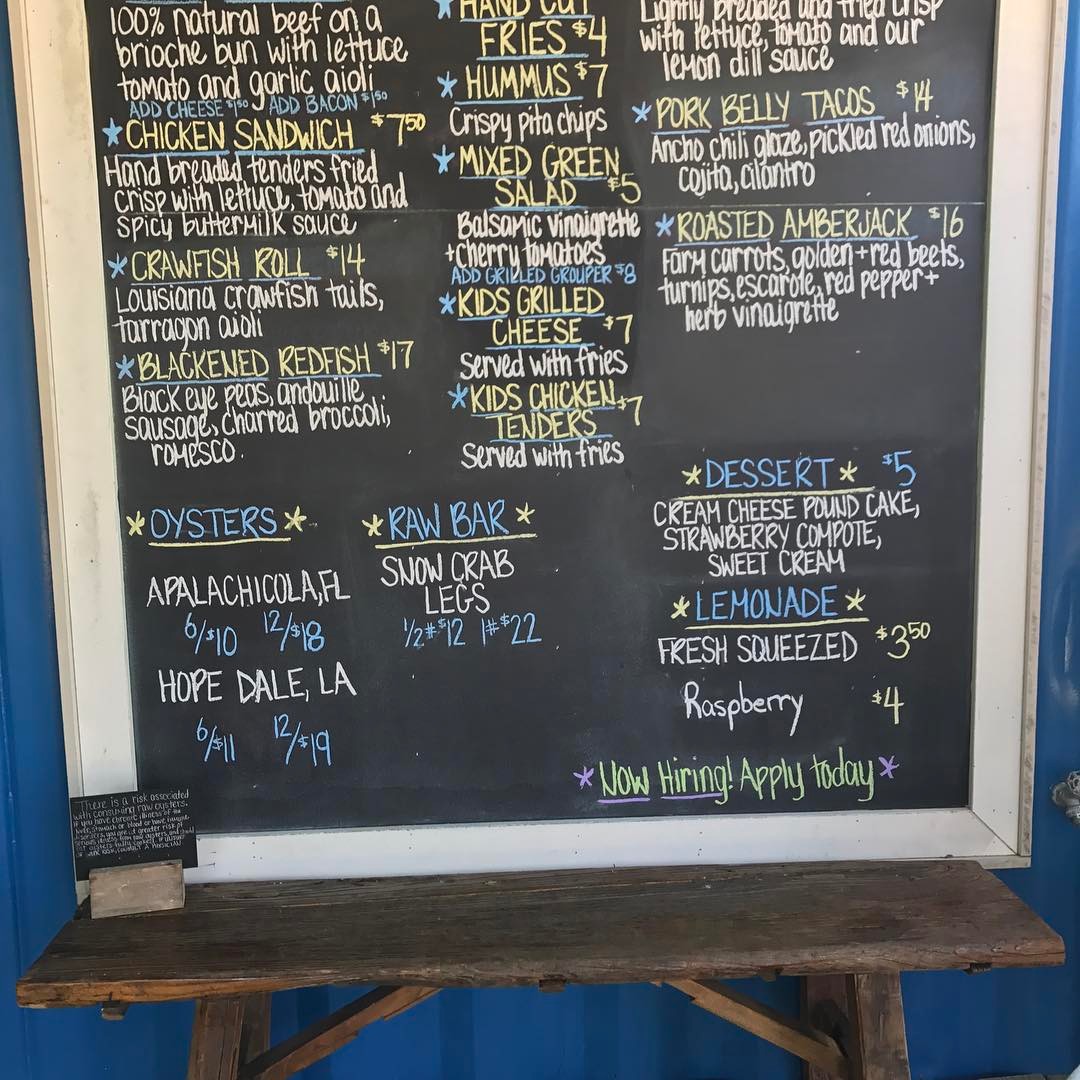 100% natural beef on a
brioche bun with lettuce
tomato and garlic aioli
ADD CHEESE $1.50 ADD BACON $1.50
* CHICKEN SANDWICH $7.50
Hand breaded tenders fried
crisp with lettuce, tomato and
spicy buttermilk sauce
* CRAWFISH ROLL $14
Louisiana crawfish tails,
tarragon aioli
* BLACKENED REDFISH $17
Black eye peas, andouille
sausage, charred broccoli,
romesco.
* HAND CUT
FRIES $4
* HUMMUS $7
Crispy pita chips
* MIXED GREEN
SALAD $5
Balsamic vinaigrette
+cherry tomatoes
ADD GRILLED GROUPER $8
* KIDS GRILLED
CHEESE $7
Served with fries
* KIDS CHICKEN
TENDERS $7
Served with fries
Lightly breaded and fried crisp
with lettuce, tomato and our
lemon dill sauce
* PORK BELLY TACOS $14
Ancho chili glaze, pickled red onions,
cojita, cilantro
* ROASTED AMBERJACK $16
Farm carrots, golden+red beets,
turnips, escarole, red pepper+
herb vinaigrette
* OYSTERS *
APALACHICOLA, FL
6/$10 12/$18
HOPE DALE, LA
6/$11 12/$19
* RAW BAR *
SNOW CRAB
LEGS
1/2# $12 1# $22
* DESSERT * $5
CREAM CHEESE POUND CAKE,
STRAWBERRY COMPOTE,
SWEET CREAM
* LEMONADE *
FRESH SQUEEZED $3.50
Raspberry $4
* Now Hiring! Apply Today *
There is a risk associated
with consuming raw oysters.
if you have chronic illness of the